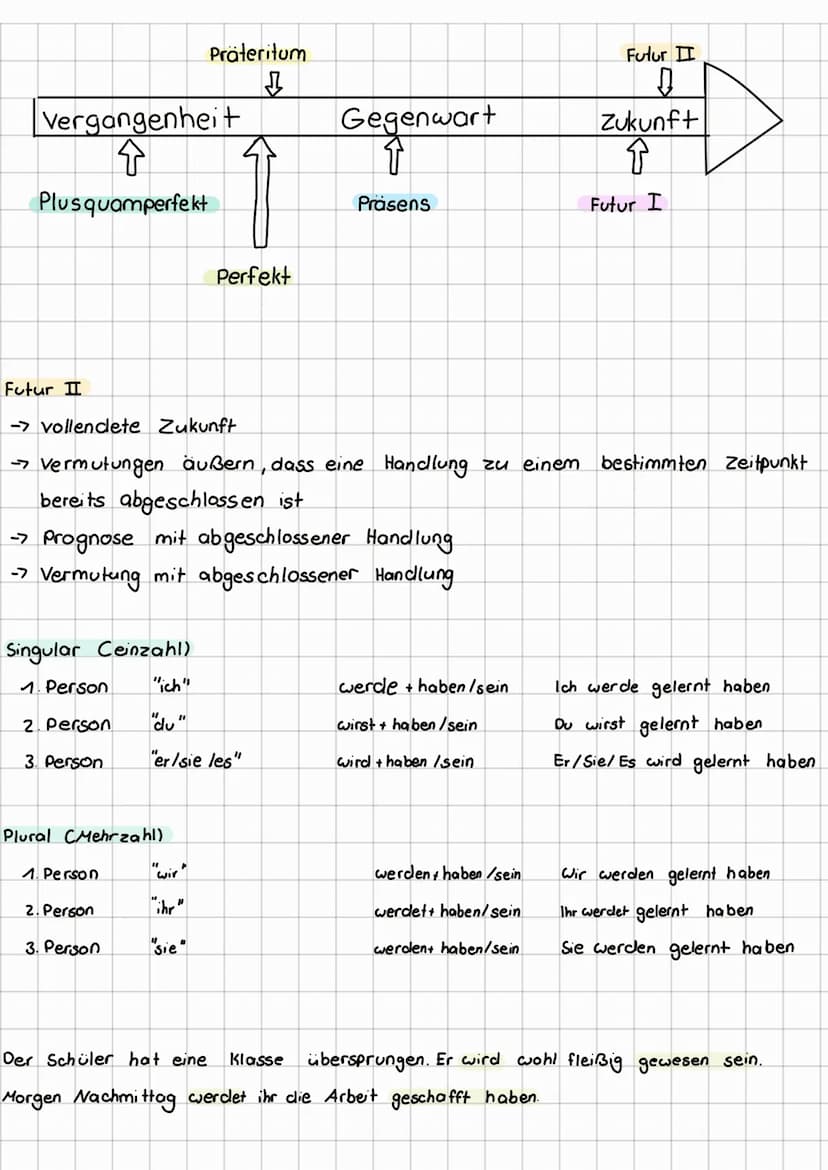 Präteritum Futur II
Vergangenheit Gegenwart Zukunft
Plusquamperfekt Präsens Futur I
Perfekt
Futur II
→ vollendete Zukunft
→ Vermutungen äußern, dass eine Handlung zu einem bestimmten Zeitpunkt
bereits abgeschlossen ist
→ Prognose mit abgeschlossener Handlung
→ Vermutung mit abgeschlossener Handlung
Singular (einzahl)
1. Person "ich" werde + haben/sein Ich werde gelernt haben
2. Person "du" wirst + haben/sein Du wirst gelernt haben
3. Person "er/sie/es" wird + haben/sein Er/Sie/Es wird gelernt haben
Plural (Mehrzahl)
1. Person "wir" werden + haben/sein Wir werden gelernt haben
2. Person "ihr" werdet + haben/sein Ihr werdet gelernt haben
3. Person "sie" werden + haben/sein Sie werden gelernt haben
Der Schüler hat eine Klasse übersprungen. Er wird wohl fleißig gewesen sein.
Morgen Nachmittag werdet ihr die Arbeit geschafft haben.